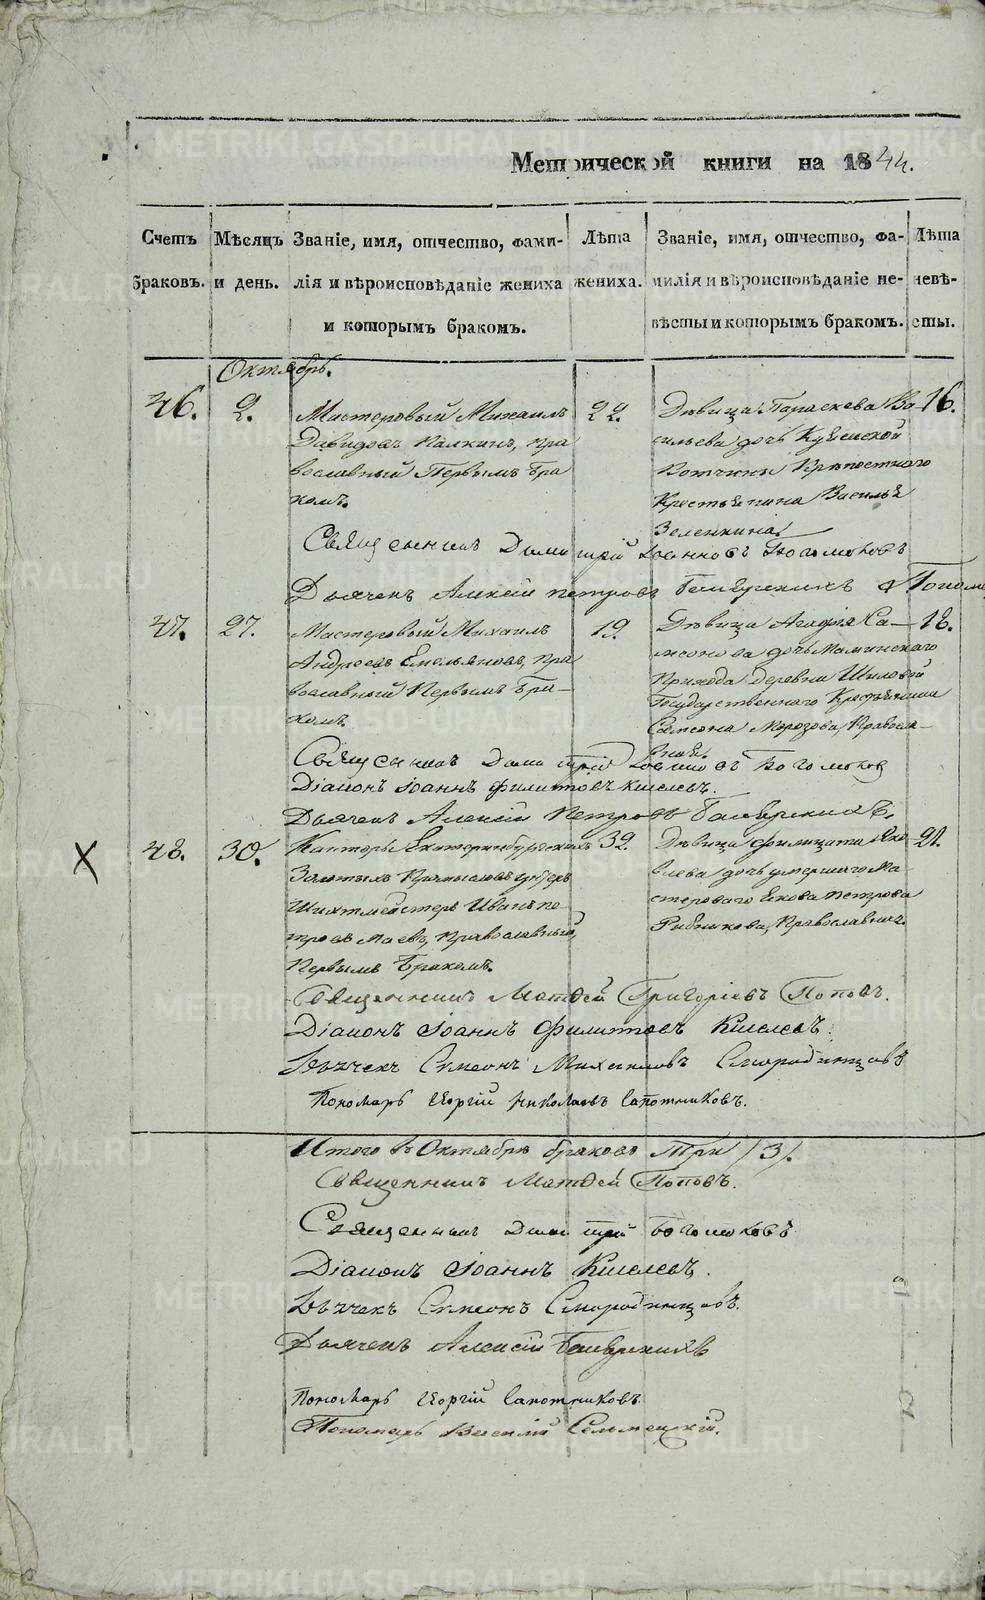 Метрической книги на 1844.
Счетъ браковъ.
Мѣсяцъ и день.
Званіе, имя, отчество, фамилія и вѣроисповѣданіе жениха и которымъ бракомъ.
Лѣта жениха.
Званіе, имя, отчество, фамилія и вѣроисповѣданіе невѣсты и которымъ бракомъ.
Лѣта невѣсты.
Октябрь.
46. 2.
Мастеровый Михаилъ
Давидовъ Палкинъ, пра
вославный Первымъ бра
комъ.
22.
Дѣвица Параскева Ва
сильева дочь
Вотчины Крѣпостнаго
Крестьянина Василья
Зеленкина
16.
Священникъ Димитрій Іоанновъ Богомоловъ
Дьячекъ Алексій Петровъ
47. 27.
Мастеровый Михаилъ
Андреевъ Емельяновъ, пра
вославный Первымъ бра–
комъ.
19.
Дѣвица Агафія Са–
мсонова дочь Маминскаго
Прихода Деревни Шиловой
Государственнаго Крестьянина
Самсона Морозова, Правосла–
вная.
18.
Священникъ Димитрій Іоанновъ Богомоловъ
Діаконъ Іоаннъ Филиповъ Киселевъ.
Дьячекъ Алексій Петровъ
48. 30.
Конторы Екатеринбургскихъ
Золотыхъ Промысловъ унтеръ
Шихтмейстеръ Иванъ Пе–
тровъ Маевъ, Православный,
Первымъ бракомъ.
32.
Дѣвица Филицата Яко
влева дочь умершаго Ма–
стероваго Якова Петрова
Рыбникова, Православная.
21.
Священникъ Матѳей Григоріевъ Поповъ.
Діаконъ Іоаннъ Филиповъ Киселевъ.
Дьячекъ Симеонъ Михаиловъ Смородинцовъ
Пономарь Георгій Николаевъ Сапожниковъ.
Итого въ Октябрѣ браковъ Три /3/.
Священникъ Матѳей Поповъ.
Священникъ Димитрій Богомоловъ
Діаконъ Іоаннъ Киселевъ.
Дьячекъ Симеонъ Смородинцовъ.
Дьячекъ Алексій
Пономарь Георгій Сапожниковъ
Пономарь Василій
METRIKI.GASO-URAL.RU